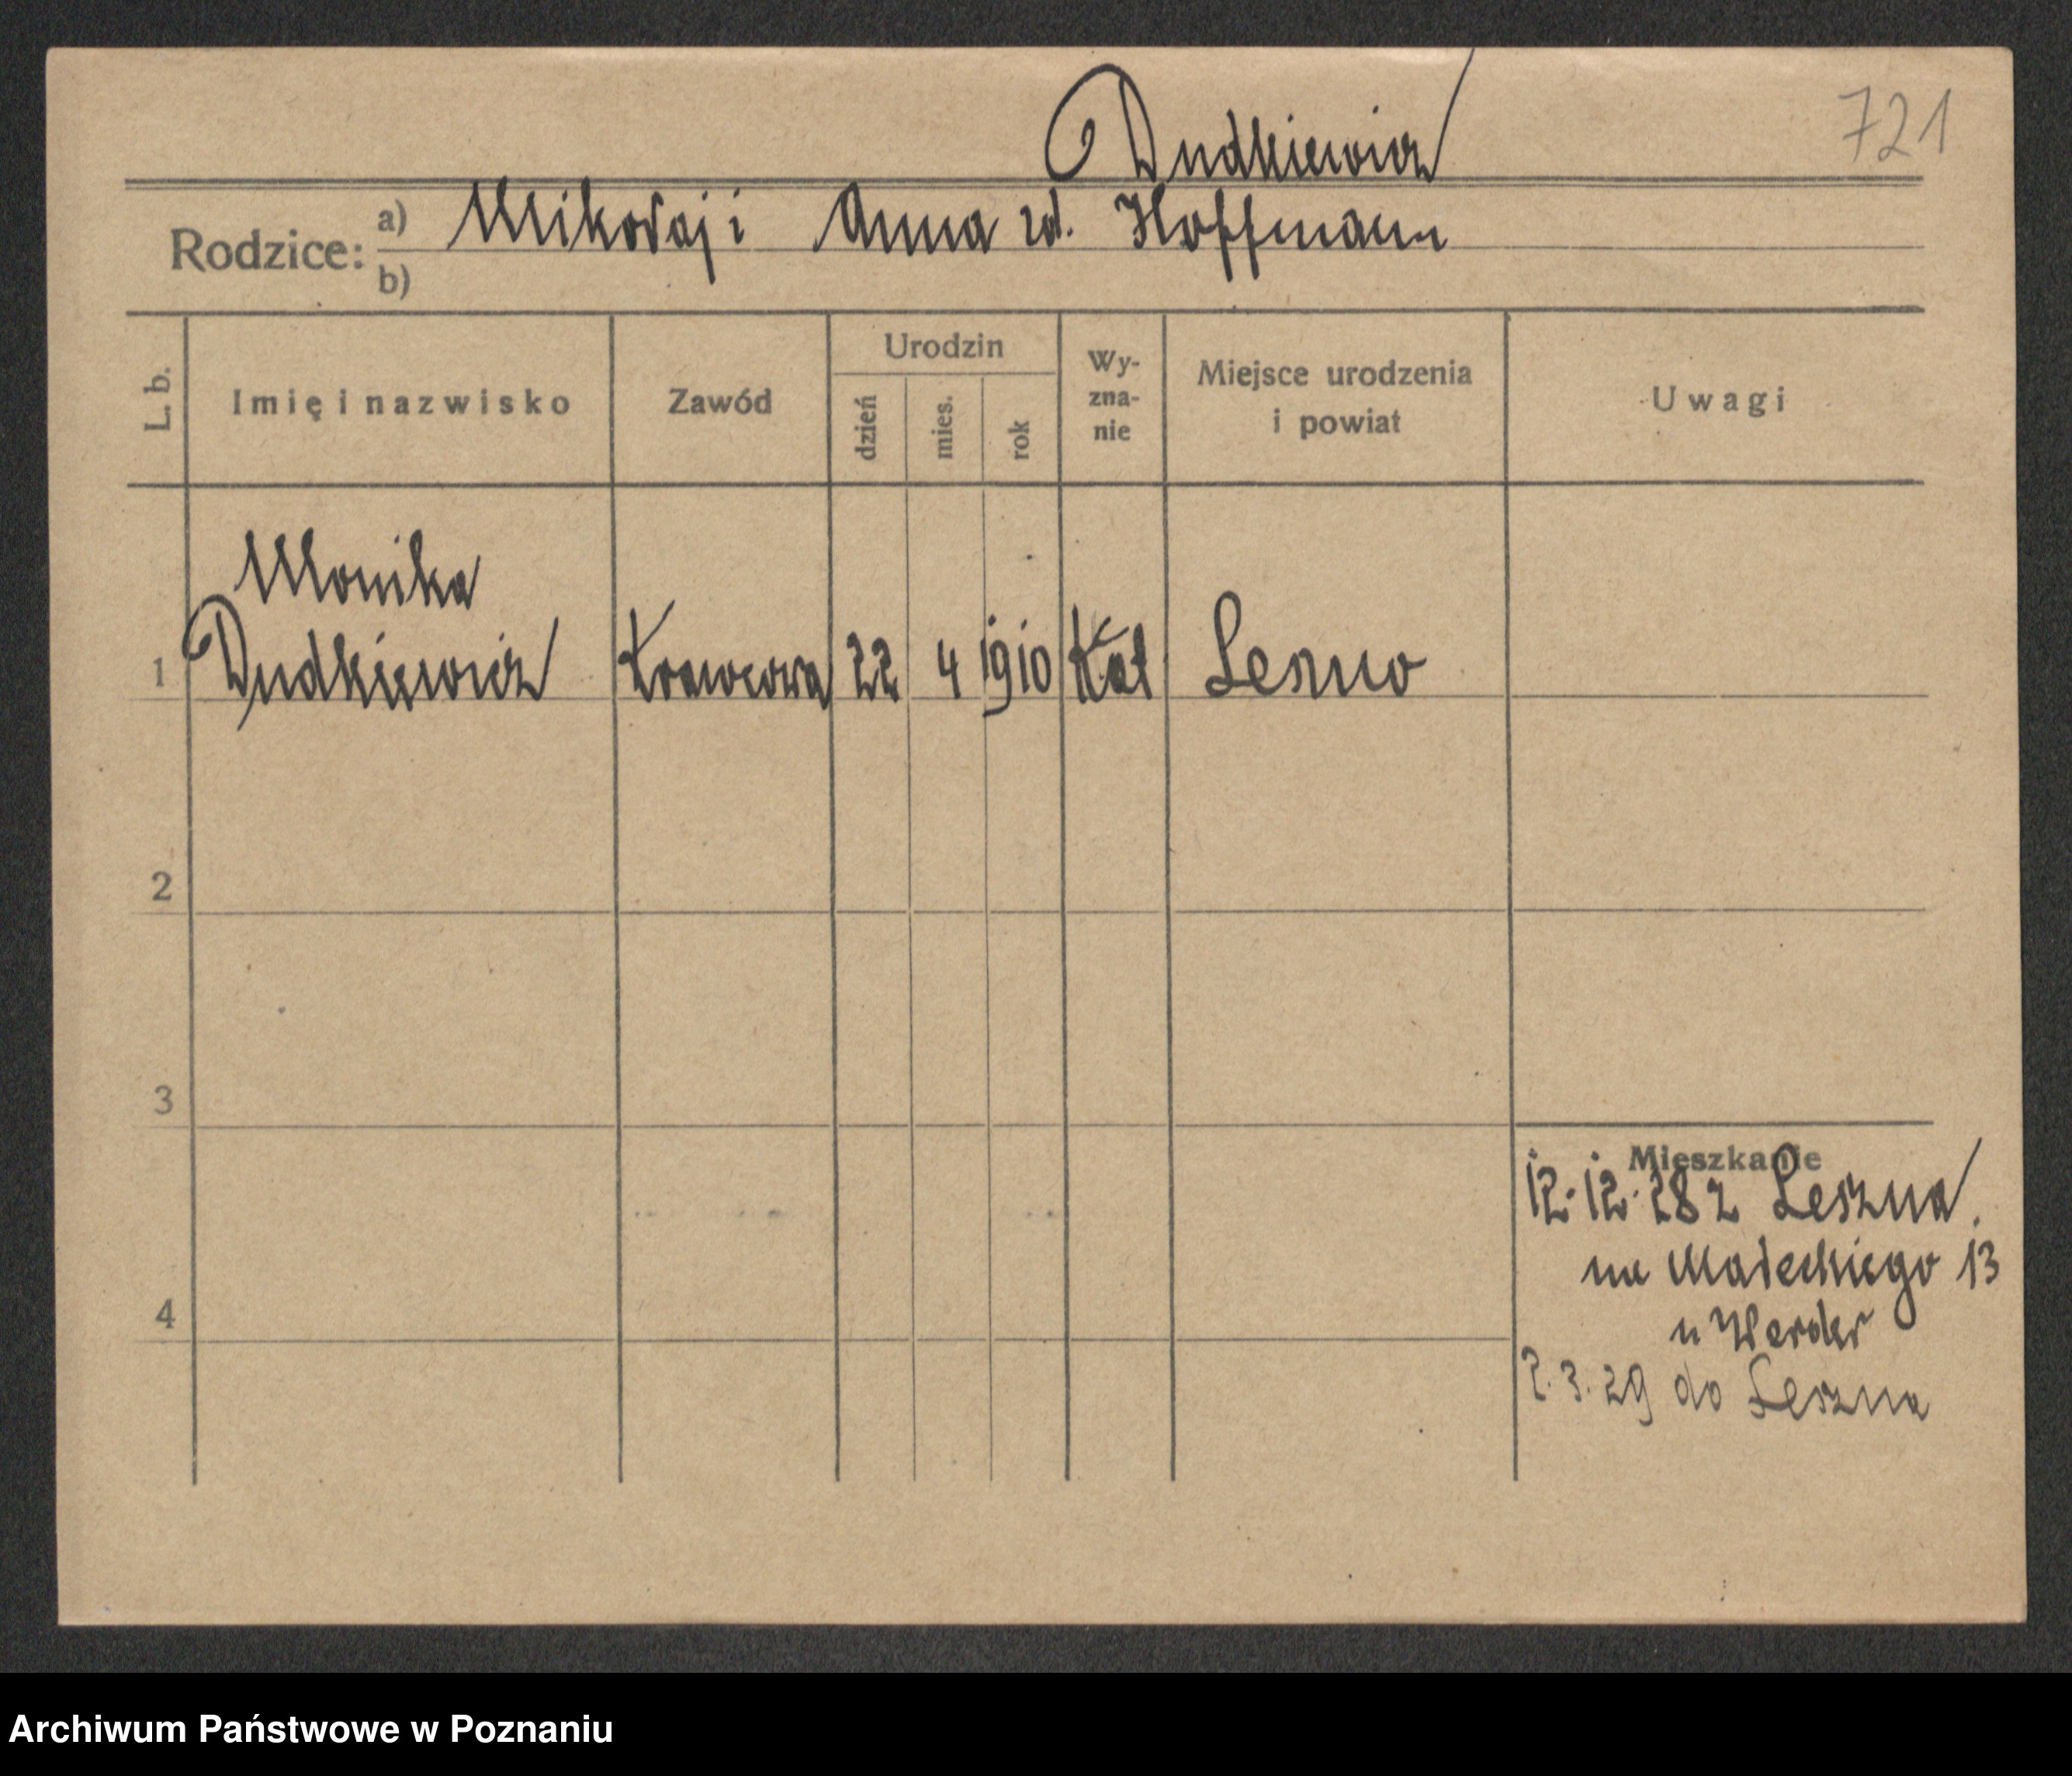 Dudkiewicz
721
Rodzice: a) Mikołaj i Anna zd. Hoffmann
b)
L. b. Imię i nazwisko Zawód Urodzin dzień mies. rok Wy-zna-nie Miejsce urodzenia i powiat Uwagi
Monika
1 Dudkiewicz Krawcowa 22 4 1910 Kat Leszno
2
3
Mieszkanie
12.12.28 z Leszna.
na Małeckiego 13
4
u Werder
2.3.29 do Leszna
Archiwum Państwowe w Poznaniu